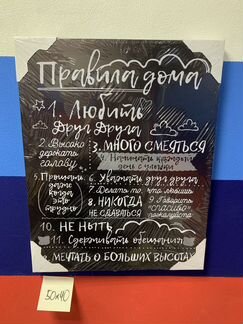 Правила дома
1. Любить
Друг Друга
2. Высоко
держать
голову
3. МНОГО СМЕЯТЬСЯ
4. Начинать каждый
день с улыбки
5. Прощать
даже
когда
это
трудно
6. Уважать друг друга
7. Делать то, что любим
8. НИКОГДА
НЕ СДАВАТЬСЯ
9. Говорить
спасибо
пожалуйста
10. НЕ НЫТЬ
11. Сдерживать обещания
МЕЧТАТЬ О БОЛЬШИХ ВЫСОТАХ
50х40